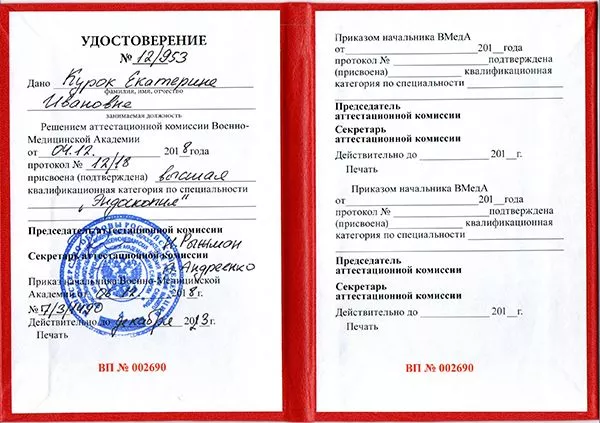 УДОСТОВЕРЕНИЕ
№ 12/953
Дано Курок Екатерине
фамилия, имя, отчество
Ивановне
занимаемая должность
Решением аттестационной комиссии Военно-
Медицинской Академии
от 04.12. 2018года
протокол № 12/18
присвоена (подтверждена) высшая
квалификационная категория по специальности
„Эндоскопия"
Председатель аттестационной комиссии
Рыжман
Секретарь аттестационной комиссии
Андреенко
Приказ начальника Военно-Медицинской
Академии от 06.12. 2018г.
№7/3/1490
Действительно до декабря 2023г.
Печать
ВП № 002690
Приказом начальника ВМедА
от 201__года
протокол № подтверждена
(присвоена) квалификационная
категория по специальности
Председатель
аттестационной комиссии
Секретарь
аттестационной комиссии
Действительно до 201__г.
Печать
Приказом начальника ВМедА
от 201__года
протокол № подтверждена
(присвоена) квалификационная
категория по специальности
Председатель
аттестационной комиссии
Секретарь
аттестационной комиссии
Действительно до 201__г.
Печать
ВП № 002690